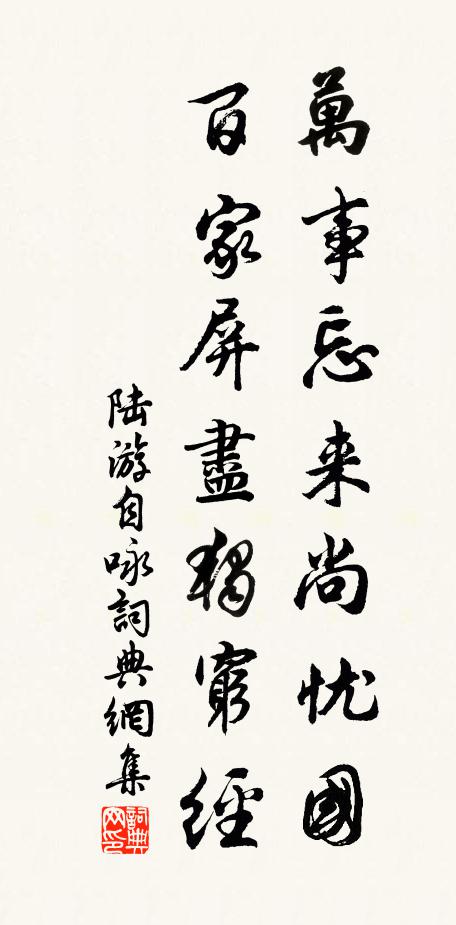 萬事忘来尚忧國
百家屏盡獨窮經
陆游自咏詞典網集
詞典
网印